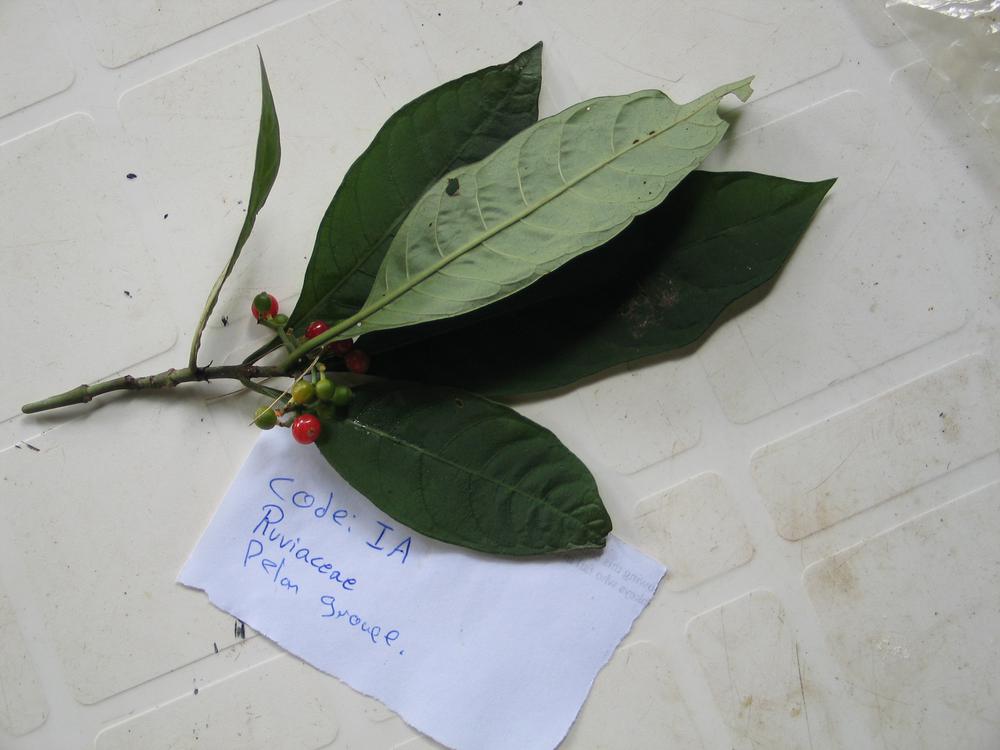 Code: IA
Ruviaceae
Pelon grouee.